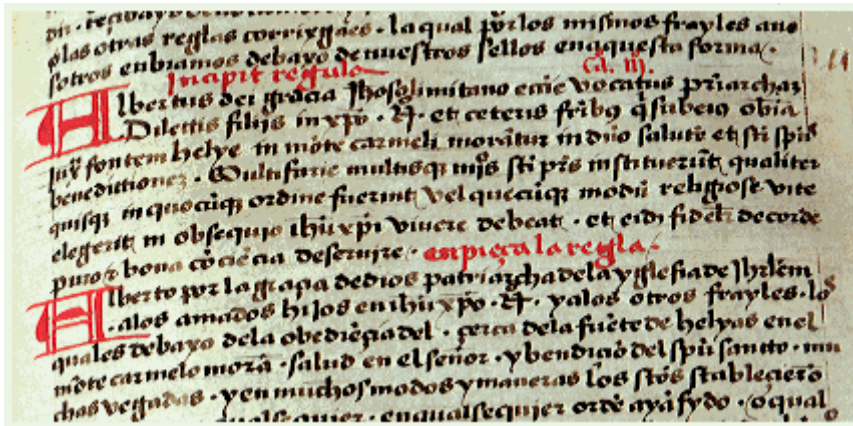 olas otras reglas corrixgães · la qual por los mismos frayles ano
sotros enbiamos debaxo de nuestros sellos en aquesta forma ·
Incipit regula Ca. III.
Albertus dei gracia Jhosolimitano eccie vocatus priarchaz
Dilectis filijs in xpo · N · et ceteris fribus q̃ sub eius obia
juxͣ fontem helye in mõte carmeli morãtur in dño salutẽ et sti spũs
benedictionez · Multifarie multisq̃ mõs sti pr̃s instituerũt qualiter
quisq̃ in quocũq̃ ordine fuerint vel quecũq̃ modũ religiose vite
elegerit in obsequio ihũ xp̃i vivere debeat · et eidi fidelr̃ de corde
puro z bona cõciẽcia deservire · enpieça la regla ·
Alberto por la gracia de dios patriarcha dela yglesia de Jhrlem
· alos amados hijos en ihũ xp̃o · N · y alos otros frayles · los
quales debaxo dela obediẽçia del · çerca dela fuẽte de helyas en el
mõte carmelo morã · salud en el señor · y bendiciõ del spũ sancto · mu
chas vegadas · y en muchos modos y maneras los stõs stableciẽrõ
qualsequier · en qualsequjer ordẽ ayã sydo · o qual